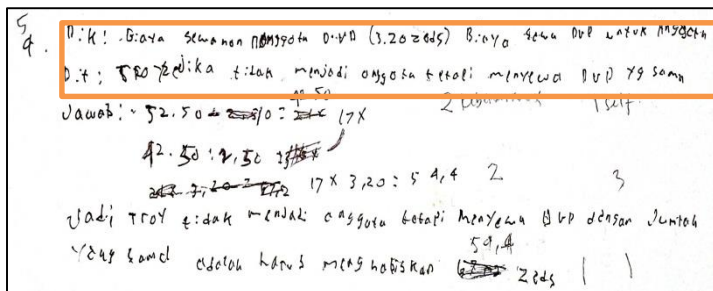 5
4. Dik: Biaya sewa non anggota DVD (3.20 zeds) Biaya sewa DVD untuk anggota
Dit: TROY jika tidak menjadi anggota tetapi menyewa DVD yg sama
Jawab: 52.50 10 = 42.50 17x
42.50 : 2,50
17 x 3,20 : 54,4 2 3
Jadi TROY tidak menjadi anggota tetapi menyewa DVD dengan Jumlah
Yang sama adalah harus menghabiskan 54,4 zeds 1